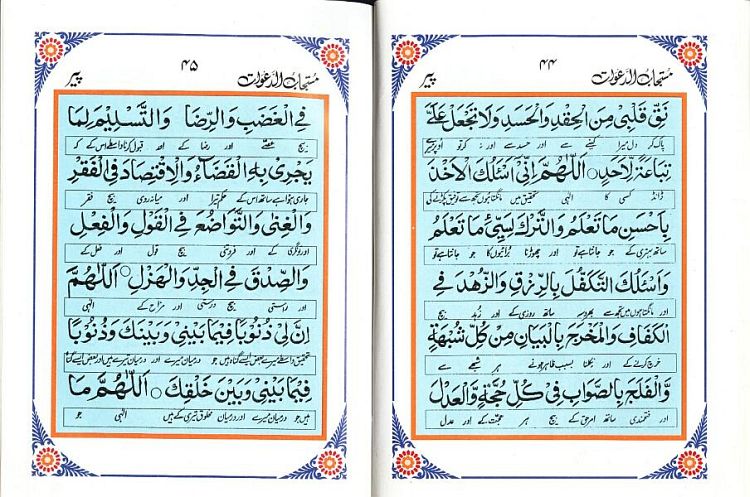 مستجاب الدعوات ۴۴ پیر
نَقِّ قَلْبِیْ مِنَ الْحِقْدِ وَالْحَسَدِ وَلَا تَجْعَلْ عَلَیَّ
پاک کر دل میرا کینے سے اور حسد سے اور نہ کر تو اوپر میرے
تِبَاعَةً لِاَحَدٍ ○ اَللّٰهُمَّ اِنِّیْ اَسْئَلُكَ الْاَخْذَ
ڈانڈ کسی کا الٰہی تحقیق میں مانگتا ہوں تجھ سے توفیق پکڑنے کی
بِاَحْسَنِ مَا تَعْلَمُ وَالتَّرْكَ لِسَيِّئِ مَا تَعْلَمُ
ساتھ بہتری کے جو جانتا ہے تو اور چھوڑنا برائیوں کا جو جانتا ہے تو
وَاَسْئَلُكَ التَّكَفُّلَ بِالرِّزْقِ وَالزُّهْدَ فِی
اور مانگتا ہوں میں تجھ سے بھروسہ ساتھ روزی کے اور زہد بیچ
الْكَفَافِ وَالْمَخْرَجَ بِالْبَيَانِ مِنْ كُلِّ شُبْهَةٍ
خرچ کرنے کے اور نکلنا بسبب ظاہر ہونے ہر شبہے سے
وَّالْفَلَجَ بِالصَّوَابِ فِیْ كُلِّ حُجَّةٍ وَّالْعَدْلَ
اور فتحمندی ساتھ امر حق کے بیچ ہر حجت کے اور عدل
مستجاب الدعوات ۴۵ پیر
فِی الْغَضَبِ وَالرِّضَا وَالتَّسْلِيْمَ لِمَا
بیچ غصے اور رضا کے اور قبول کرنا واسطے اس کے کہ
يَجْرِیْ بِهِ الْقَضَآءُ وَالْاِقْتِصَادَ فِی الْفَقْرِ
جاری ہوا ہے ساتھ اس کے حکم تیرا اور میانہ روی بیچ فقر
وَالْغِنٰی وَالتَّوَاضُعَ فِی الْقَوْلِ وَالْفِعْلِ
اور تونگری کے اور فروتنی بیچ قول اور فعل کے
وَالصِّدْقَ فِی الْجِدِّ وَالْهَزْلِ ○ اَللّٰهُمَّ
اور راستی بیچ درستی اور مزاح کے الٰہی
اِنَّ لِیْ ذُنُوْبًا فِيْمَا بَيْنِیْ وَبَيْنَكَ وَذُنُوْبًا
تحقیق واسطے میرے بعض ایسے گناہ ہیں جو درمیان میرے اور درمیان تیرے ہیں اور بعض ایسے گناہ
فِيْمَا بَيْنِیْ وَبَيْنَ خَلْقِكَ ○ اَللّٰهُمَّ مَا
ہیں جو درمیان میرے اور درمیان مخلوق تیری کے ہیں الٰہی جو